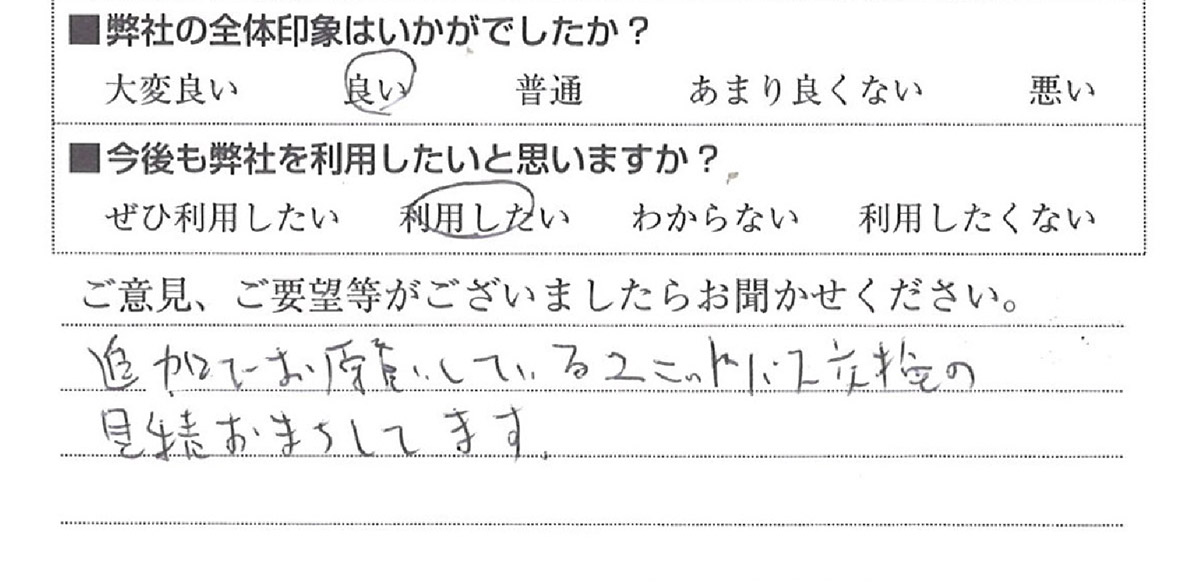 ■弊社の全体印象はいかがでしたか？
大変良い 良い 普通 あまり良くない 悪い
■今後も弊社を利用したいと思いますか？
ぜひ利用したい 利用したい わからない 利用したくない
ご意見、ご要望等がございましたらお聞かせください。
追加でお願いしているユニットバス交換の
見積おまちしてます.